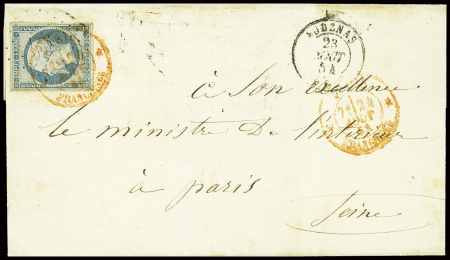 AUBENAS
23
AOUT
54
à Son excellence
le ministre De l'intérieur
à paris
Seine